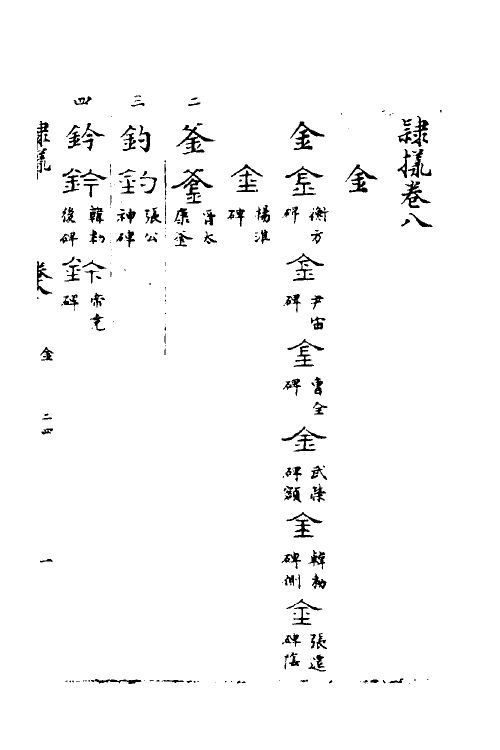 隷㨾卷八
金
金 金 衡方碑 金 尹宙碑 金 曹全碑 金 武榮碑額 金 韓勑碑側 金 張遷碑陰
金 楊淮碑
二 釜 釜 晉太康釜
三 釣 釣 張公神碑
四 鈐 鈐 韓勑後碑 鈐 帝堯碑
隷㨾 卷八 金 二四 一